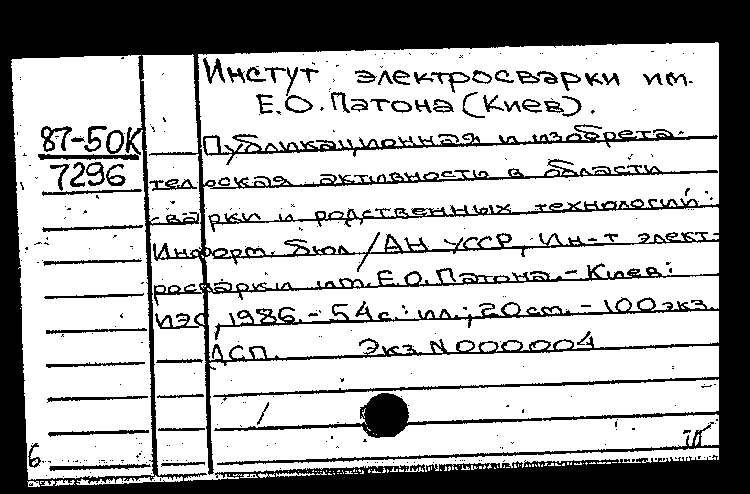 Инстут электросварки им.
Е.О. Патона (Киев).
87-50К
7296
Публикационная и изобрета-
тельская активность в области
сварки и родственных технологий:
Информ. бюл / АН УССР, Ин-т элект-
росварки им. Е.О. Патона. - Киев:
ИЭС, 1986. - 54 с.: ил.; 20 см. - 100 экз.
ДСП. Экз. N000.004
6